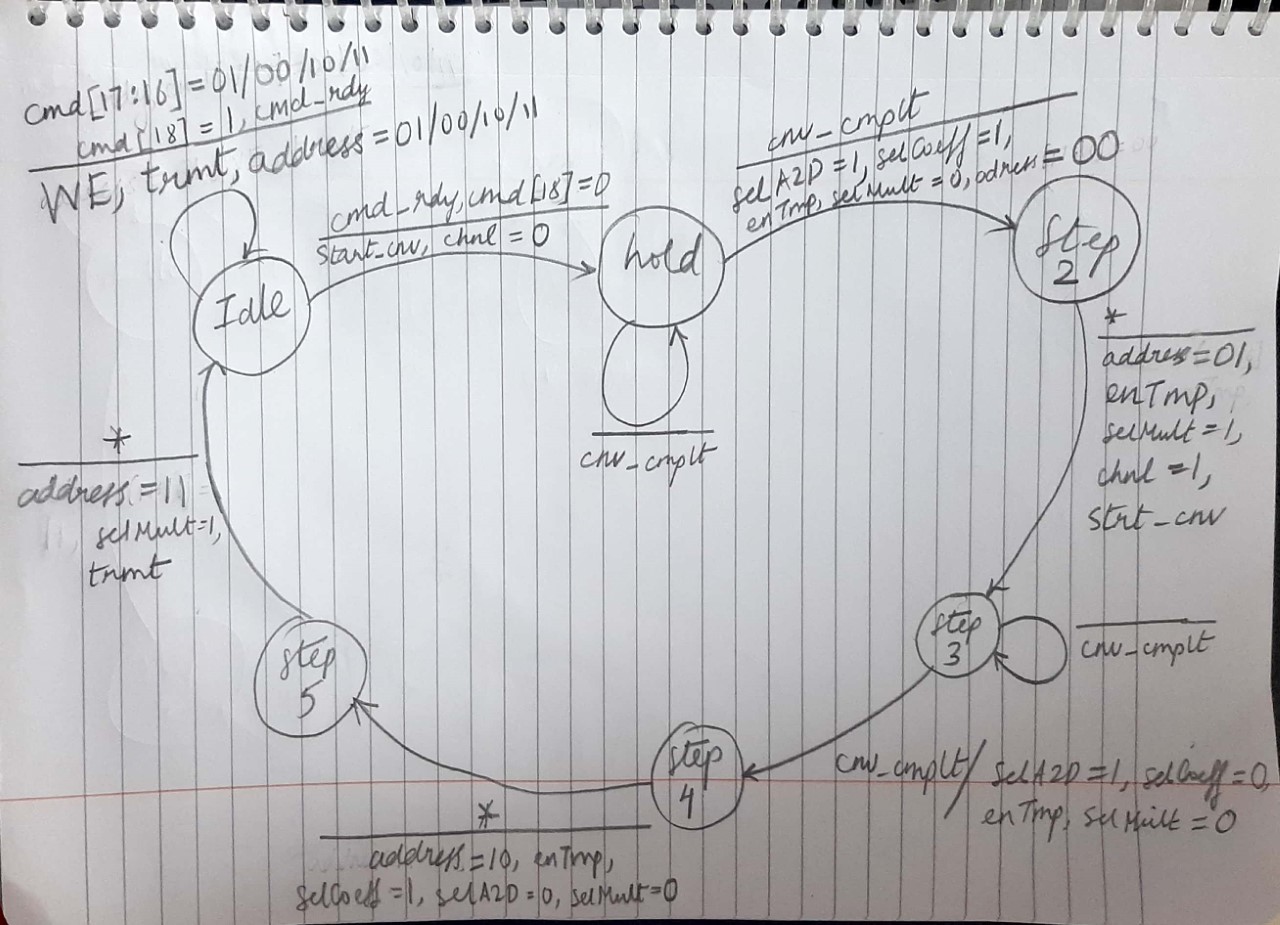 cmd[17:16] = 01/00/10/11
cmd[18] = 1, cmd_rdy
WE, trmt, address = 01/00/10/11
Idle
cmd_rdy, cmd[18]=0
start_cnv, chnl = 0
hold
cnv_cmplt
cnv_cmplt
selA2D = 1, selCoeff = 1,
enTmp, selMult = 0, adress = 00
Step
2
*
address = 01,
enTmp,
selMult = 1,
chnl = 1,
strt_cnv
step
3
cnv_cmplt
cnv_cmplt/ selA2D = 1, selCoeff = 0,
enTmp, selMult = 0
step
4
*
address = 10, enTmp,
selCoeff = 1, selA2D = 0, selMult = 0
step
5
*
address = 11
selMult = 1,
trmt